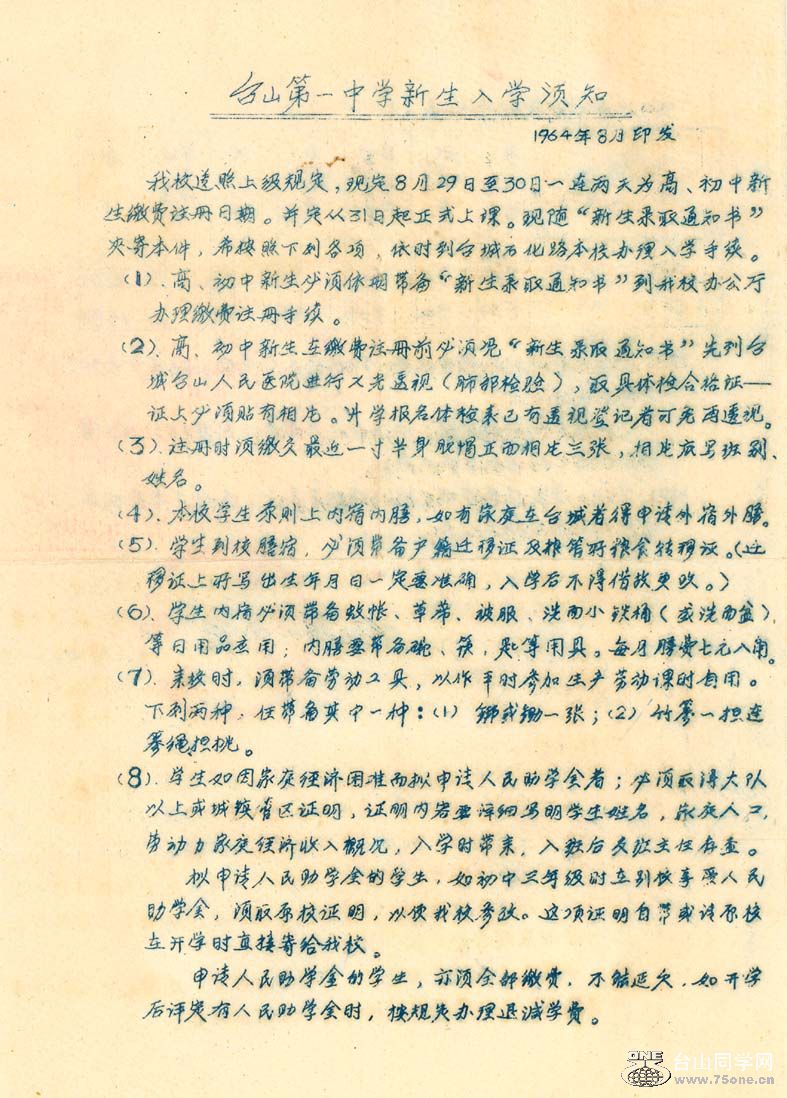 台山第一中学新生入学须知
1964年8月印发
我校遵照上级规定，现定8月29日至30日一连两天为高、初中新
生缴费注册日期。并定从31日起正式上课。现随“新生录取通知书”
夹寄本件，希按照下列各项，依时到台城石化路本校办理入学手续。
(1).高、初中新生必须依期带备“新生录取通知书”到我校办公厅
办理缴费注册手续。
(2).高、初中新生在缴费注册前必须凭“新生录取通知书”先到台
城台山人民医院进行X光透视（肺部检验），取具体检合格证——
证上必须贴有相片。升学报名体检表已有透视登记者可免再透视。
(3).注册时须缴交最近一寸半身脱帽正面相片三张，相片底写班别、
姓名。
(4).本校学生原则上内宿内膳，如有家庭在台城者得申请外宿外膳。
(5).学生到校膳宿，必须带备户籍迁移证及粮管所粮食转移证。（迁
移证上所写出生年月日一定要准确，入学后不得借故更改。）
(6).学生内宿必须带备蚊帐、草席、被服、洗面小铁桶（或洗面盆）
等日用品应用；内膳要带备碗、筷，匙等用具。每月膳费七元八角。
(7).来校时，须带备劳动工具，以作平时参加生产劳动课时自用。
下列两种，任带备其中一种：(1)锄一张；(2)竹箩一担连
箩绳担挑。
(8).学生如因家庭经济困难而拟申请人民助学金者；必须取得大队
以上或城镇管区证明，证明内容要详细写明学生姓名，家庭人口，
劳动力家庭经济收入概况，入学时带来，入班后交班主任存查。
拟申请人民助学金的学生，如初中三年级时在别校享受人民
助学金，须取原校证明，以便我校参改。这项证明自带或请原校
在开学时直接寄给我校。
申请人民助学金的学生，亦须全部缴费，不能延欠，如开学
后评定有人民助学金时，按规定办理退减学费。
ONE
台山同学网
www.75one.cn